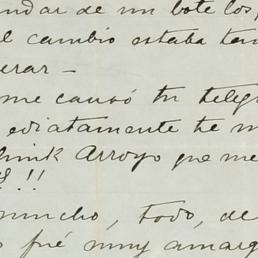 ndar de un bote los,
l cambio estaba ten
erar —
me causó tu teleg
ediatamente te m
hink Arroyo que me
!!
mucho, todo, de
fué muy amarg